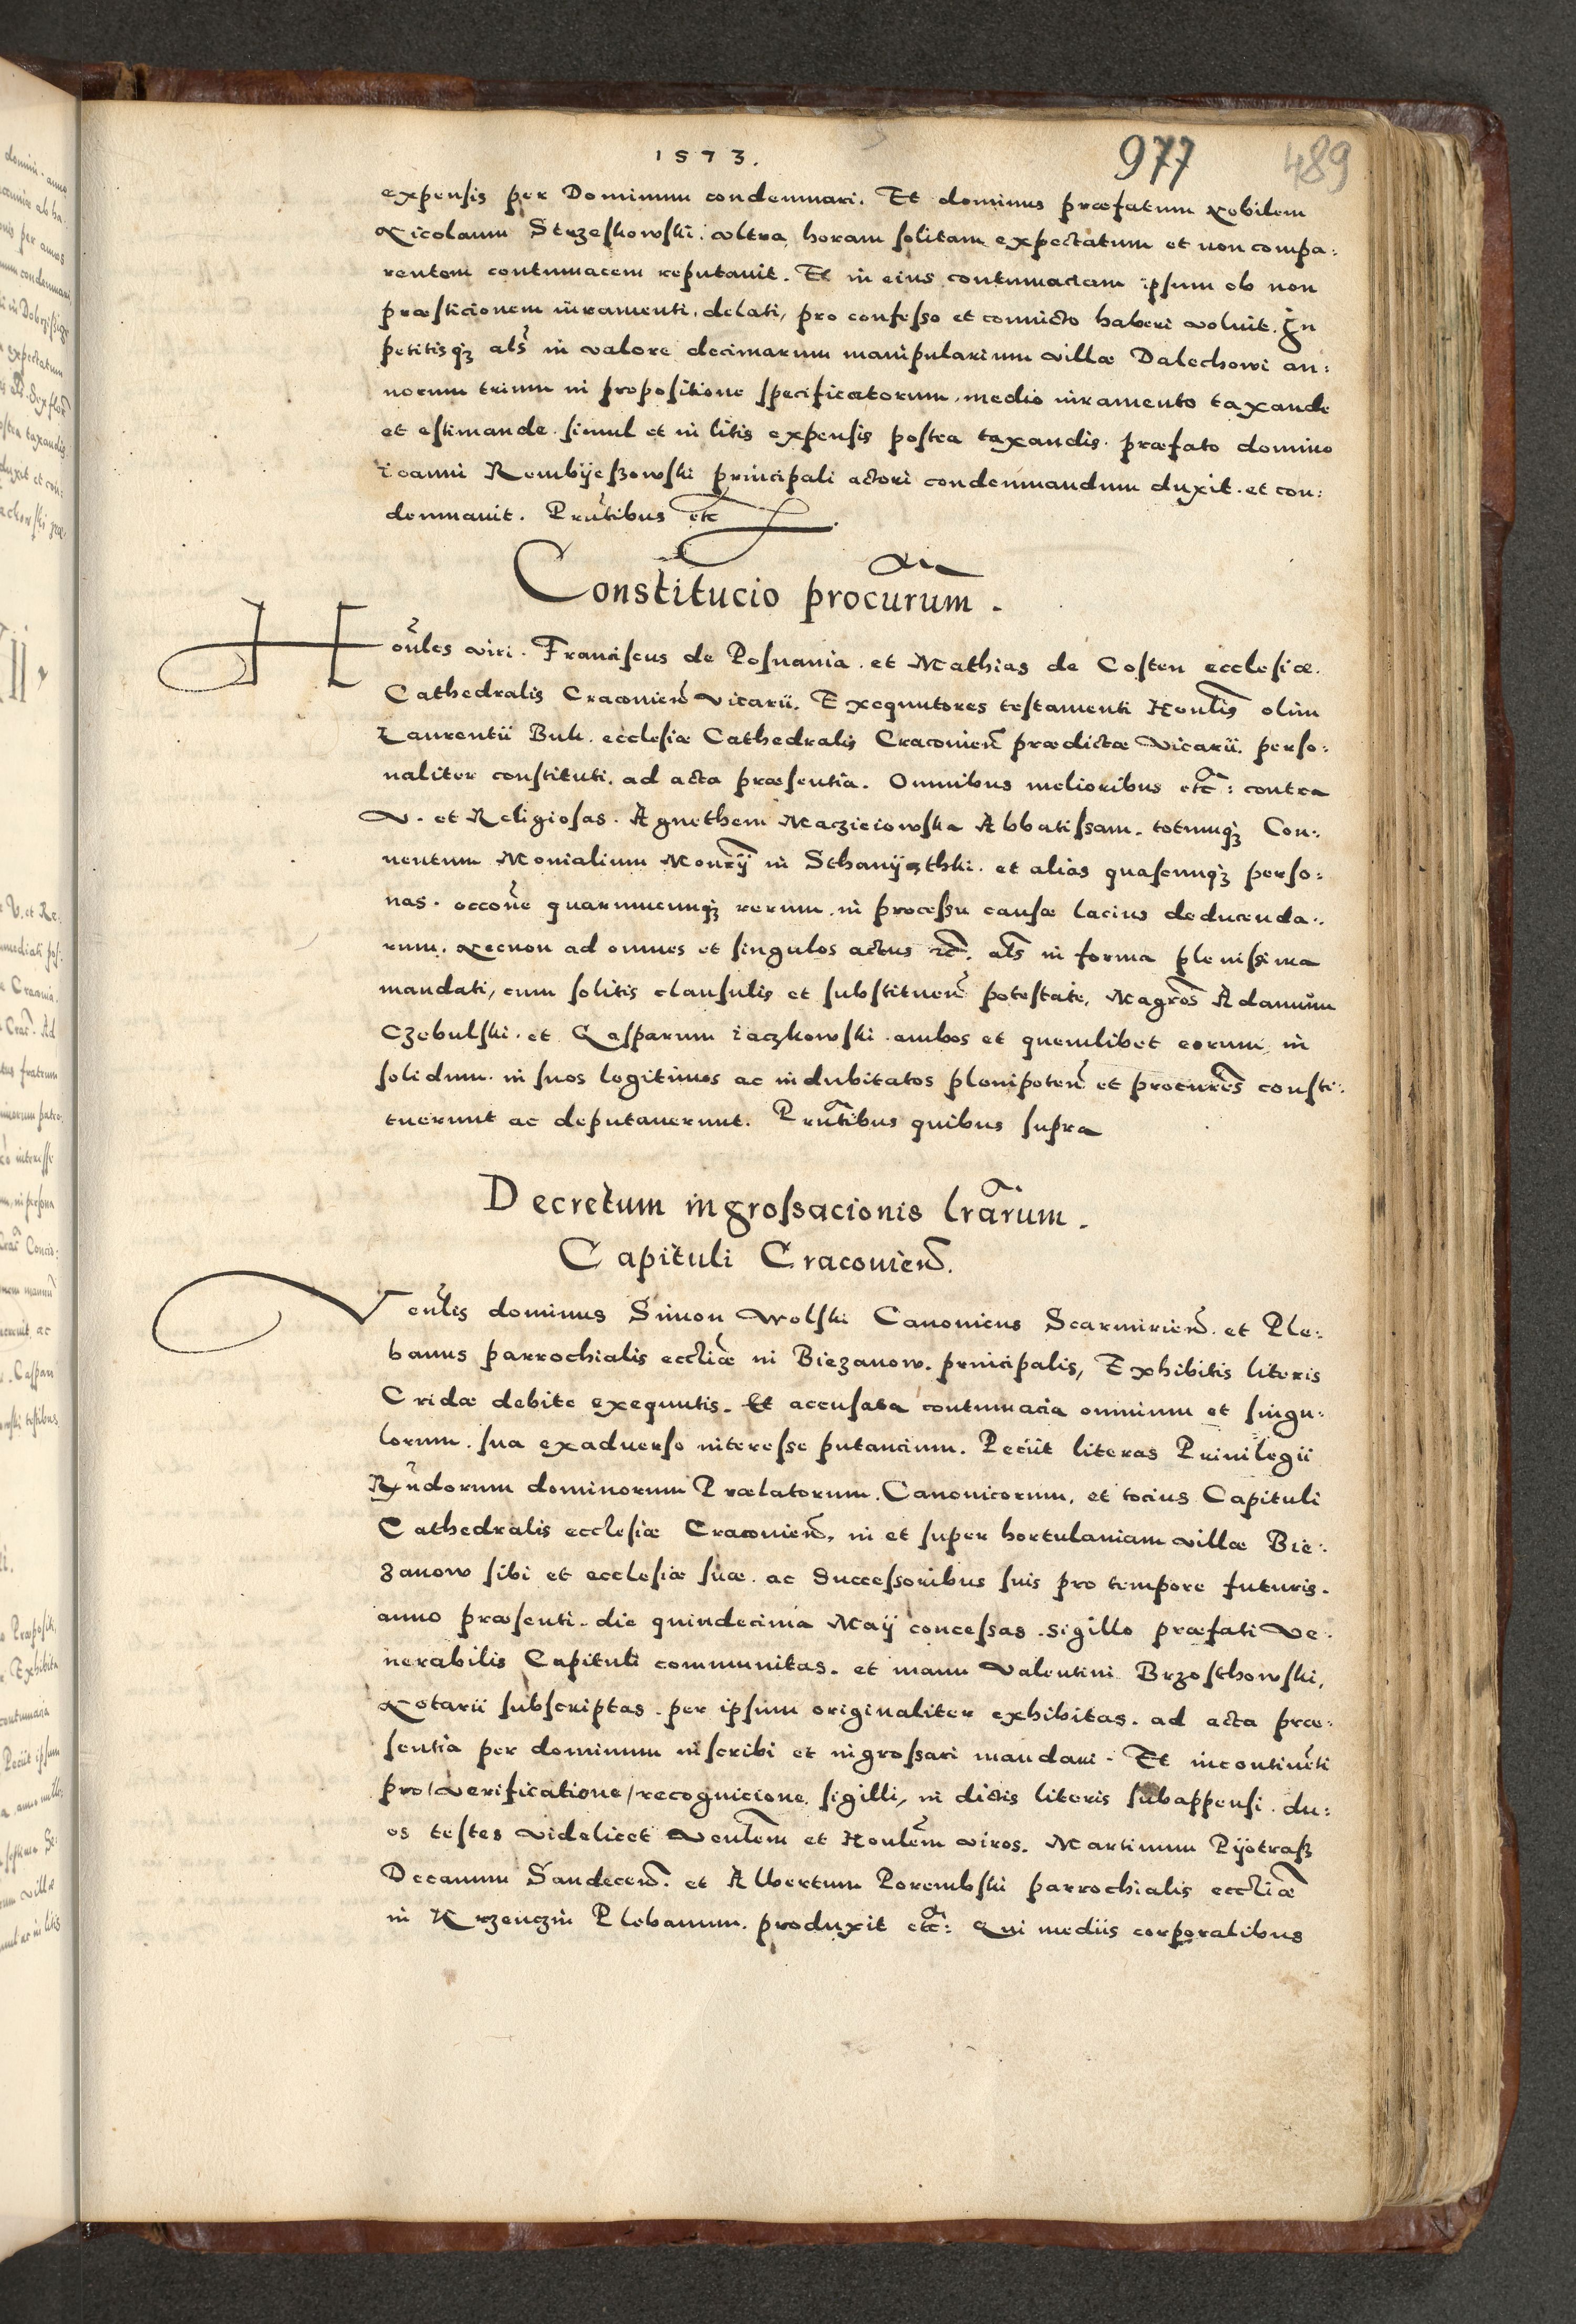 1573.
977
489
expensis per Dominum condemnari. Et dominus præfatum Nobilem
Nicolaum Strzeskowski. vltra horam solitam expectatum et non compa:
rentem contumacem reputauit. Et in eius contumaciam ipsum ob non
præsticionem iuramenti, delati, pro confesso et conuicto haberi voluit. In
petitisq₃ als in valore decimarum manipularium villæ Dalechowi an:
norum trium in propositione specificatorum, medio iuramento taxande
et estimande. simul et in litis expensis postea taxandis. præfato domino
ioanni Rembijeszowski principali actori condemnandum duxit. et con:
demnauit. Pñtibus etc
Constitucio procurum.
Hoñles viri. Franciscus de Posnania. et Mathias de Costen ecclesiæ.
Cathedralis Cracouieñ Vicarii. Exequutores testamenti Honlis olim
Laurentii Buk. ecclesiæ Cathedralis Cracouieñ prædictæ Vicarii. perso:
naliter constituti, ad acta præsentia. Omnibus melioribus etc: contra
V. et Religiosas. Agnethem Macziciowska Abbatissam. totumq₃ Con:
uentum Monialium Monrÿ in Sthanÿgthki. et alias quascunq₃ perso:
nas. occoñe quarumcunq₃ rerum, in processu causæ lacius deducenda:
rum. Necnon ad omnes et singulos actus etc. als in forma plenissima
mandati, cum solitis clausulis et substitueñ potestate, Magros Adamum
Czebulski. et Gasparum iaczkowski. ambos et quemlibet eorum, in
solidum. in suos legitimos ac indubitatos plenipoteñ et procures consti:
tuerunt ac deputauerunt. Pruñtibus quibus supra
Decretum ingrossacionis lrarum.
Capituli Cracouieñ.
Veñlis dominus Simon Wolski Canonicus Scarmirieñ. et Ple:
banus parrochialis eccliæ in Biezanow. principalis, Exhibitis literis
Cridæ debite exequutis. Et accusata contumacia omnium et singu:
lorum. sua exaduerso interesse putancium. Peciit literas Priuilegii
Rñdorum dominorum Prælatorum. Canonicorum, et tocius Capituli
Cathedralis ecclesiæ Cracouieñ, in et super hortulaniam villæ Bie:
zanow sibi et ecclesiæ suæ. ac Successoribus suis pro tempore futuris.
anno præsenti. die quindecima Maÿ concessas. sigillo præfati Ve:
nerabilis Capituli communitas. et manu Valentini Brzosthowski,
Notarii subscriptas. per ipsum originaliter exhibitas. ad acta præ:
sentia per dominum inscribi et ingrossari mandari. Et incontineti
pro/verificatione/recognicione sigilli, in dictis literis subappensi. du:
os testes videlicet Venlem et Honlem viros. Martinum Pÿotrasz
Decanum Sandeceñ. et Albertum Porembski parrochialis eccliæ
in Krzenczin Plebanum. produxit etc: Qui mediis corporalibus